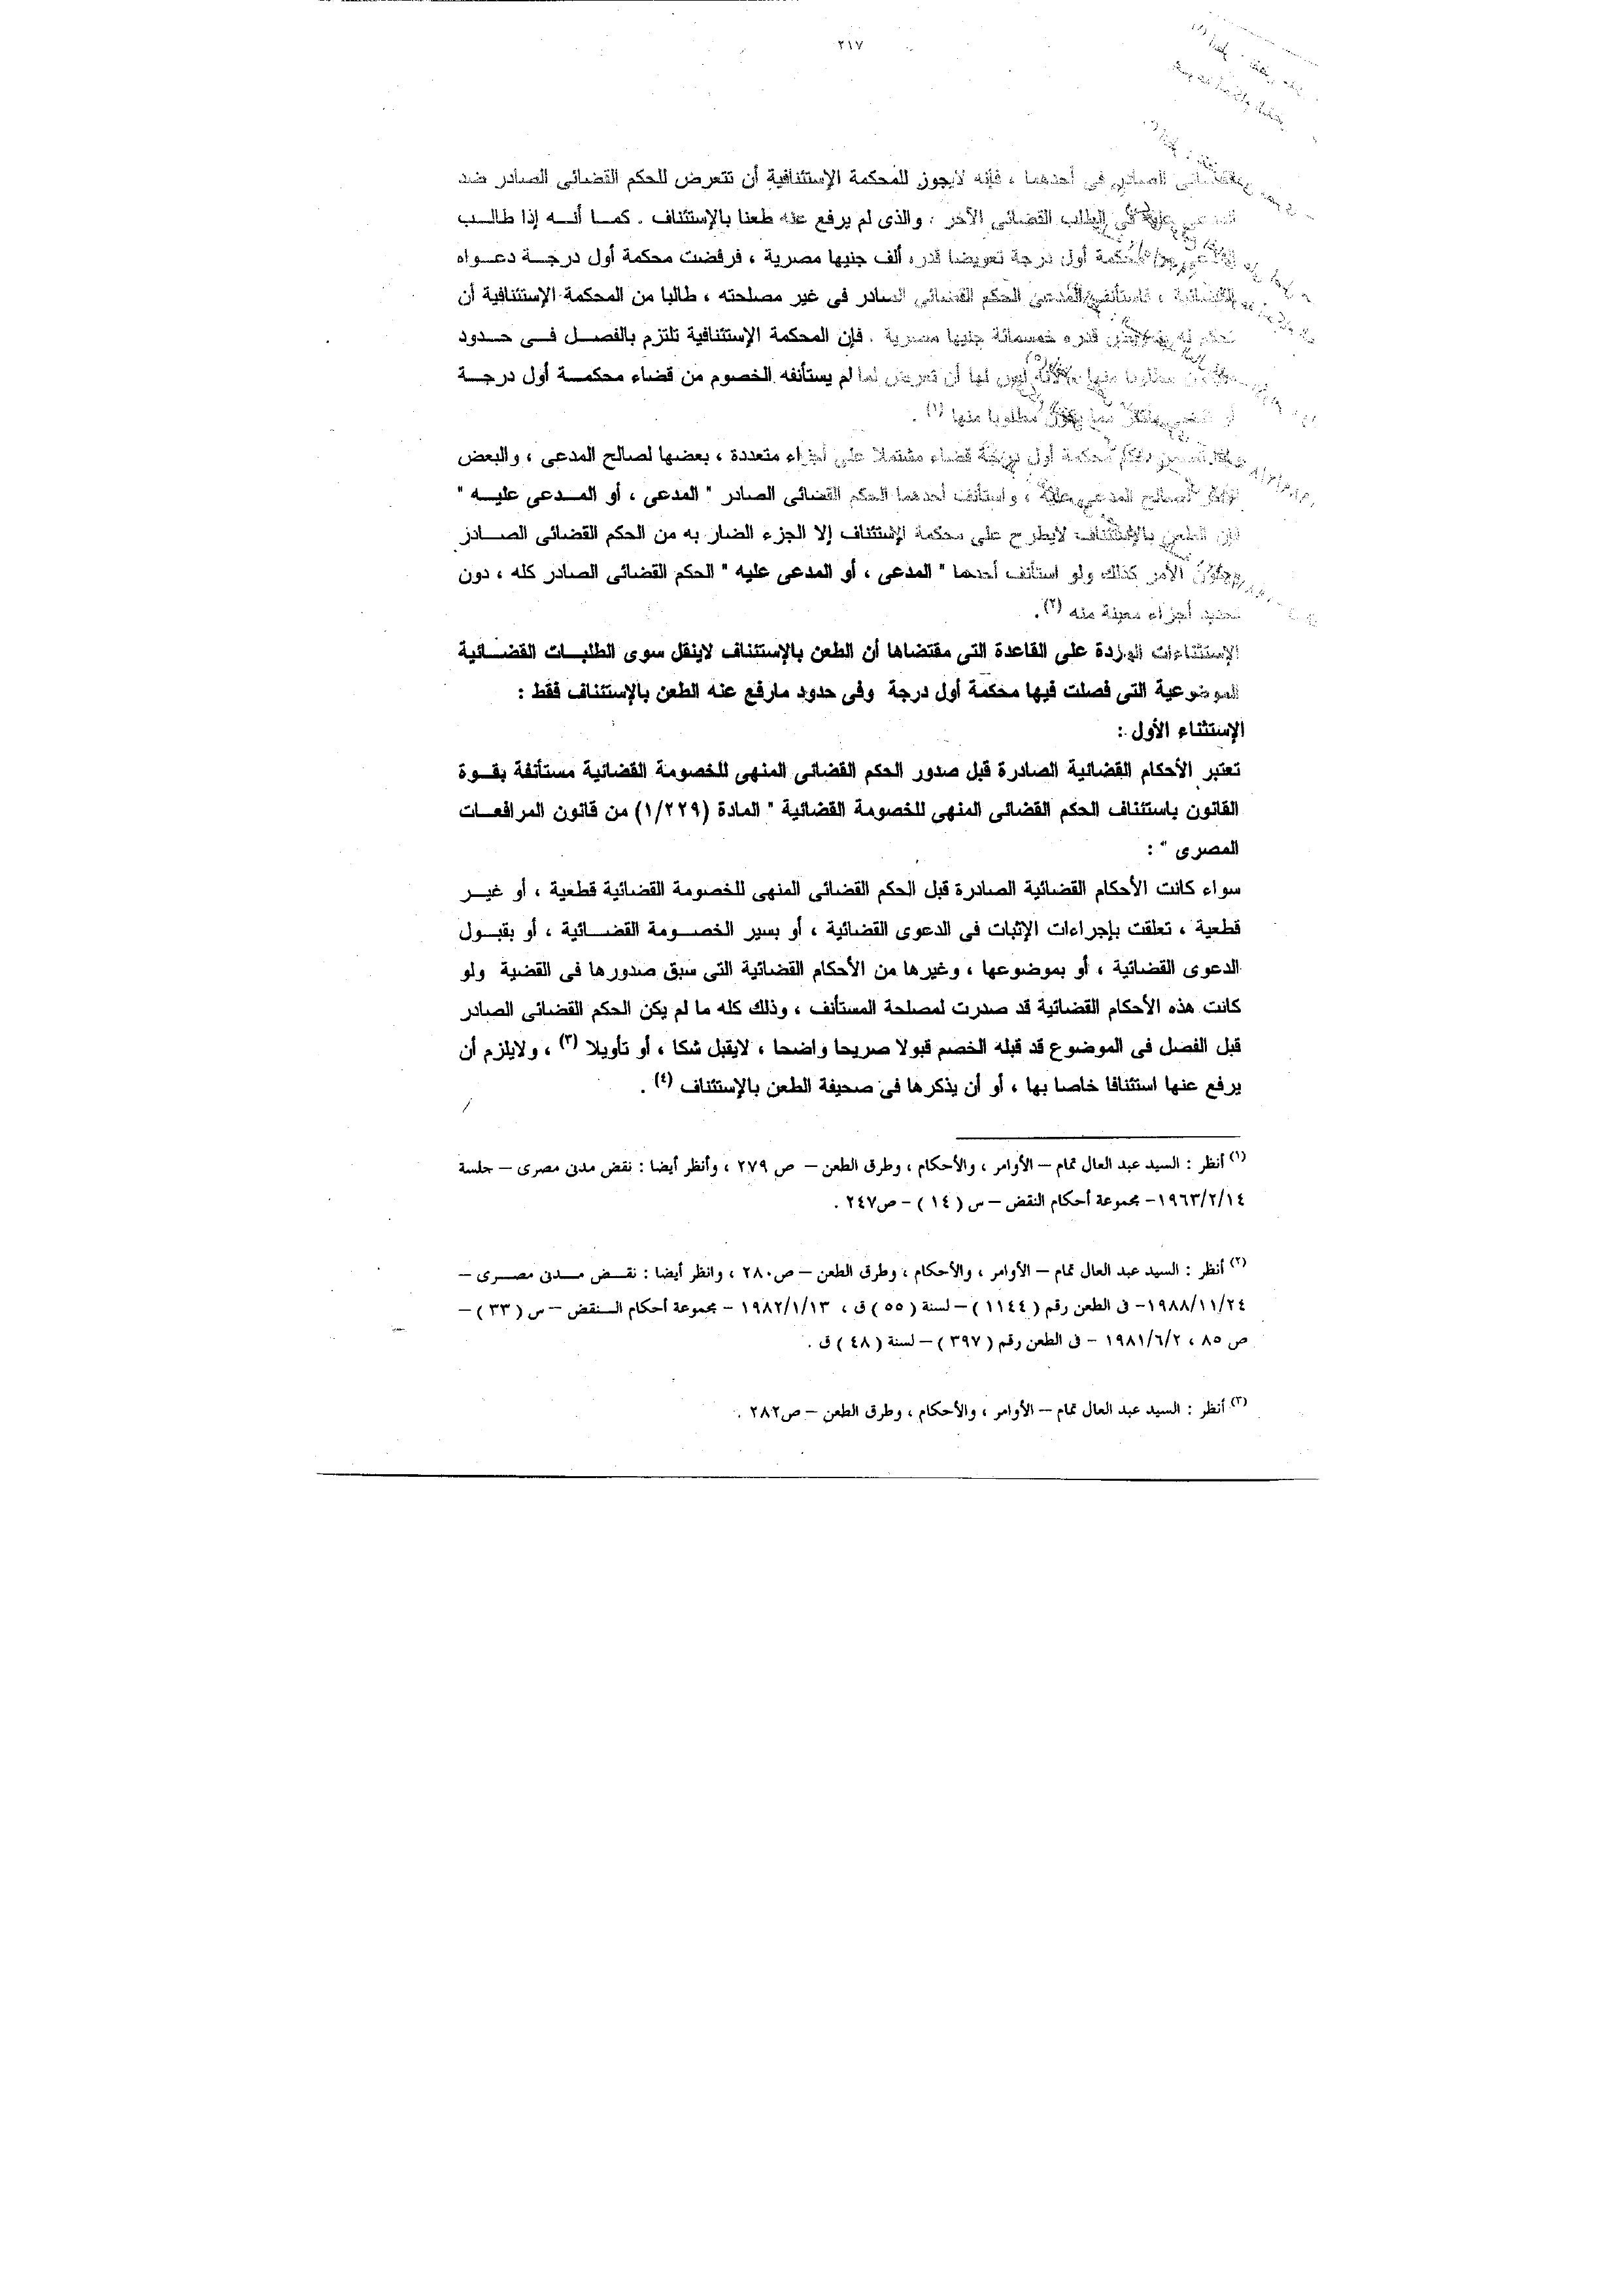 ٢١٧
الصادر فى أحدهما ، فإنه لايجوز للمحكمة الإستئنافية أن تتعرض للحكم القضائى الصادر ضد
فى الطلب القضائى الآخر ، والذى لم يرفع عنه طعنا بالإستئناف . كمـا أنـه إذا طالـب
محكمة أول درجة تعويضا قدره ألف جنيها مصرية ، فرفضت محكمة أول درجـة دعـواه
القضائية ، فاستأنف المدعى الحكم القضائى الصادر فى غير مصلحته ، طالبا من المحكمة الإستئنافية أن
تحكم له قدره خمسمائة جنيها مصرية . فإن المحكمة الإستئنافية تلتزم بالفصـل فـى حـدود
مطلوبا منها ليس لها أن تعرض لما لم يستأنفه الخصوم من قضاء محكمـة أول درجـة
مما مطلوبا منها (١) .
محكمة أول درجة قضاء مشتملا على أجزاء متعددة ، بعضها لصالح المدعى ، والبعض
لصالح المدعى عليه ، واستأنف أحدهما الحكم القضائى الصادر " المدعى ، أو المـدعى عليـه "
فإن الطعن بالإستئناف لايطرح على محكمة الإستئناف إلا الجزء الضار به من الحكم القضائى الصـادر
الأمر كذلك ولو استأنف أحدهما " المدعى ، أو المدعى عليه " الحكم القضائى الصادر كله ، دون
تحديد أجزاء معينة منه (٢).
الإستثناءات الواردة على القاعدة التى مقتضاها أن الطعن بالإستئناف لاينقل سوى الطلبـات القضـائية
الموضوعية التى فصلت فيها محكمة أول درجة وفى حدود مارفع عنه الطعن بالإستئناف فقط :
الإستثناء الأول :
تعتبر الأحكام القضائية الصادرة قبل صدور الحكم القضائى المنهى للخصومة القضائية مستأنفة بقـوة
القانون باستئناف الحكم القضائى المنهى للخصومة القضائية " المادة (١/٢٢٩) من قانون المرافعـات
المصرى " :
سواء كانت الأحكام القضائية الصادرة قبل الحكم القضائى المنهى للخصومة القضائية قطعية ، أو غيـر
قطعية ، تعلقت بإجراءات الإثبات فى الدعوى القضائية ، أو بسير الخصـومة القضـائية ، أو بقبـول
الدعوى القضائية ، أو بموضوعها ، وغيرها من الأحكام القضائية التى سبق صدورها فى القضية ولو
كانت هذه الأحكام القضائية قد صدرت لمصلحة المستأنف ، وذلك كله ما لم يكن الحكم القضائى الصادر
قبل الفصل فى الموضوع قد قبله الخصم قبولا صريحا واضحا ، لايقبل شكا ، أو تأويلا (٣) ، ولايلزم أن
يرفع عنها استئنافا خاصا بها ، أو أن يذكرها فى صحيفة الطعن بالإستئناف (٤) .
(١) أنظر : السيد عبد العال تمام – الأوامر ، والأحكام ، وطرق الطعن – ص ٢٧٩ ، وأنظر أيضا : نقض مدنى مصرى – جلسة
١٩٦٣/٢/١٤– مجموعة أحكام النقض – س ( ١٤ ) – ص٢٤٧ .
(٢) أنظر : السيد عبد العال تمام – الأوامر ، والأحكام ، وطرق الطعن – ص٢٨٠ ، وانظر أيضا : نقـض مـدنى مصـرى –
١٩٨٨/١١/٢٤– فى الطعن رقم ( ١١٤٤ ) – لسنة ( ٥٥ ) ق ، ١٩٨٢/١/١٣ – مجموعة أحكام الـنقض – س ( ٣٣ ) –
ص ٨٥ ، ١٩٨١/٦/٢ – فى الطعن رقم ( ٣٩٧ ) – لسنة ( ٤٨ ) ق .
(٣) أنظر : السيد عبد العال تمام – الأوامر ، والأحكام ، وطرق الطعن – ص٢٨٢ .